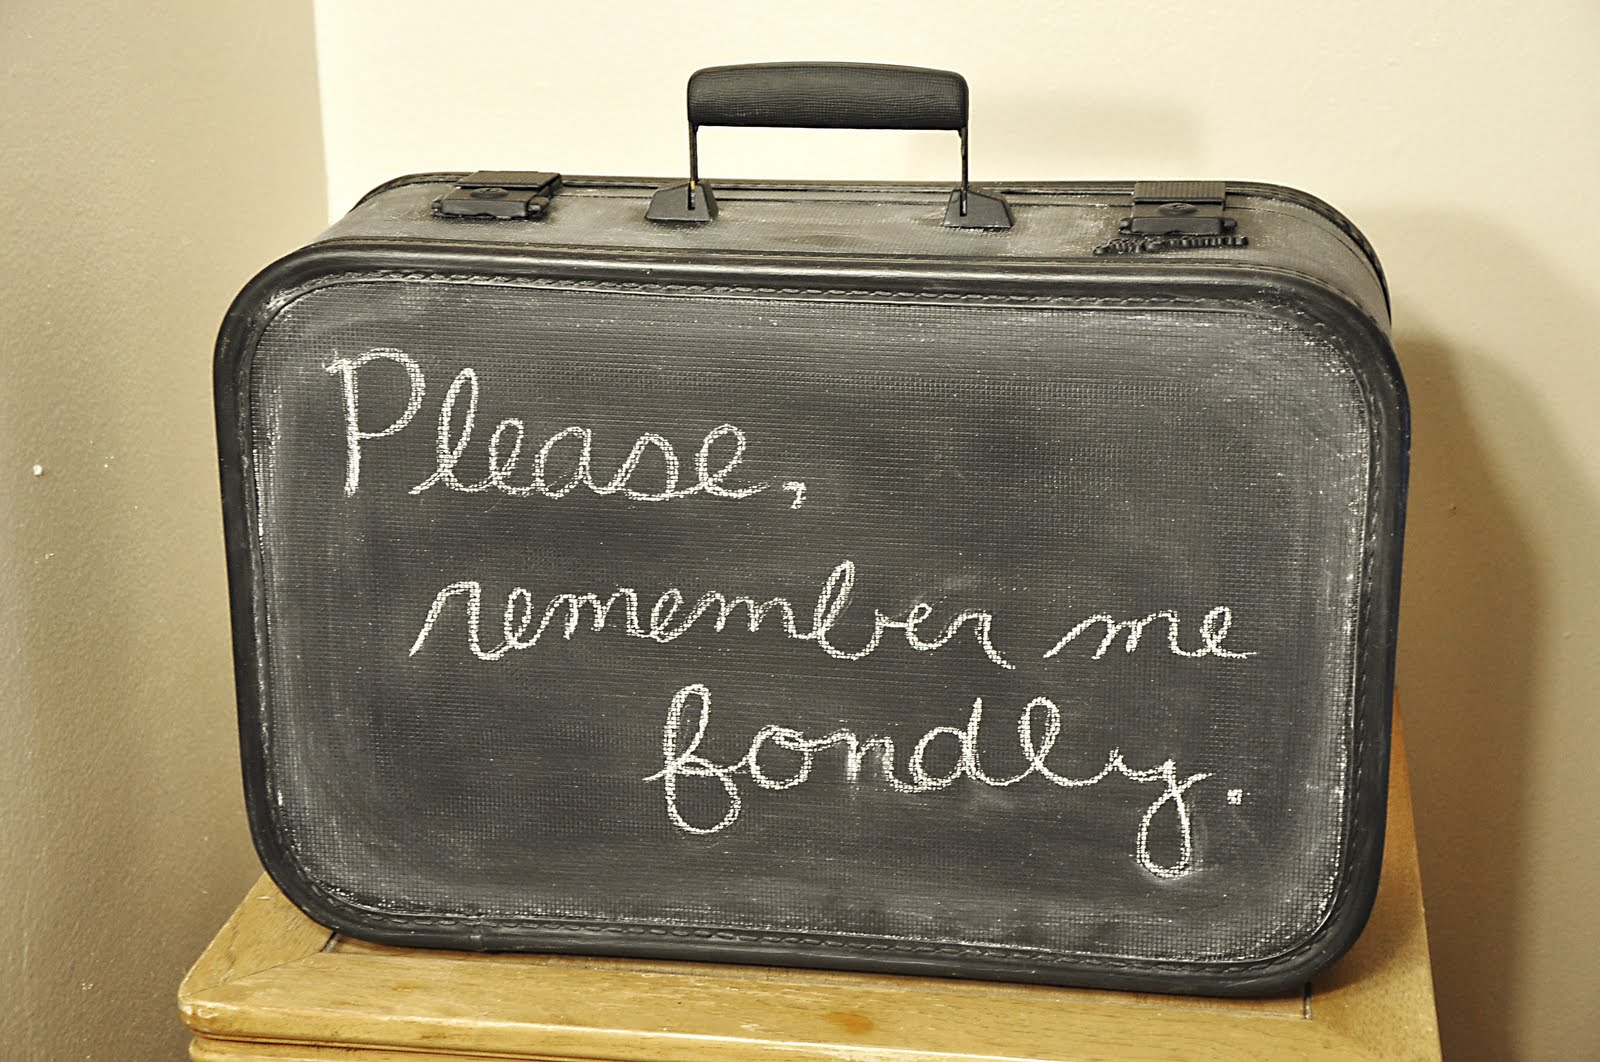 Please,
remember me
fondly.